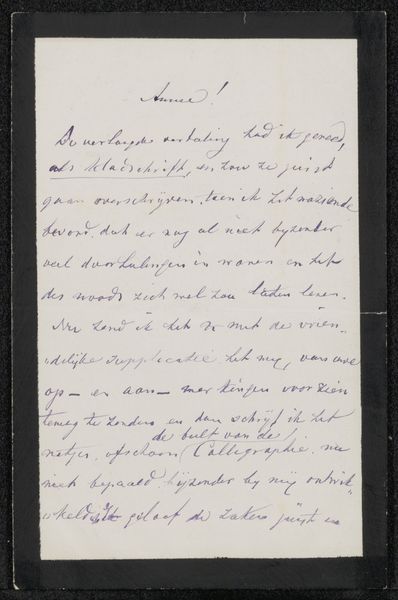 Amice!
De verlangde vertaling had ik gereed,
als kladschrift, en zou ze juist
gaan overschrijven, toen ik het naziende
bevond, dat er nog al niet byzonder
veel doorhalingen in waren en het
des noods zich wel zou laten lezen.
Nu zend ik het U met de vrien-
„delijke supplicatie het mij, van uwe
op- en aan- merkingen voorzien
terug te zenden en dan schrijf ik het
netjes, ofschoon de bult van de Calligraphie nu
niet bepaald byzonder by mij ontwik-
„keld is. Ik geloof de zaken juist en